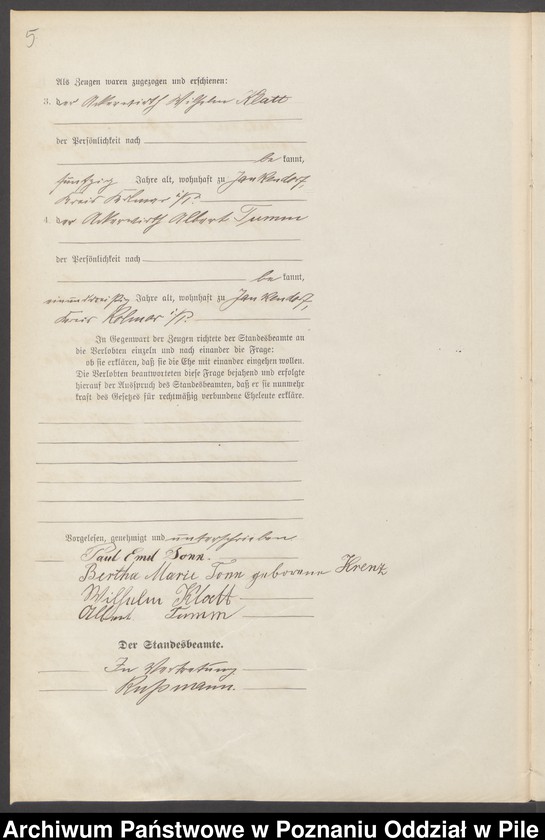 5
Als Zeugen waren zugezogen und erschienen:
3. der Ackerwirth Wilhelm Klatt
der Persönlichkeit nach
be kannt,
fünfzig Jahre alt, wohnhaft zu Jankendorf,
Kreis Kolmar i/P.
4. der Ackerwirth Albert Tumm
der Persönlichkeit nach
be kannt,
einunddreißig Jahre alt, wohnhaft zu Jankendorf,
Kreis Kolmar i/P.
In Gegenwart der Zeugen richtete der Standesbeamte an
die Verlobten einzeln und nach einander die Frage:
ob sie erklären, daß sie die Ehe mit einander eingehen wollen.
Die Verlobten beantworteten diese Frage bejahend und erfolgte
hierauf der Ausspruch des Standesbeamten, daß er sie nunmehr
kraft des Gesetzes für rechtmäßig verbundene Eheleute erkläre.
Vorgelesen, genehmigt und unterschrieben
Paul Emil Tonn.
Bertha Marie Tonn geborene Krenz
Wilhelm Klatt
Albert Tumm
Der Standesbeamte.
In Vertretung
Rußmann.
Archiwum Państwowe w Poznaniu Oddział w Pile